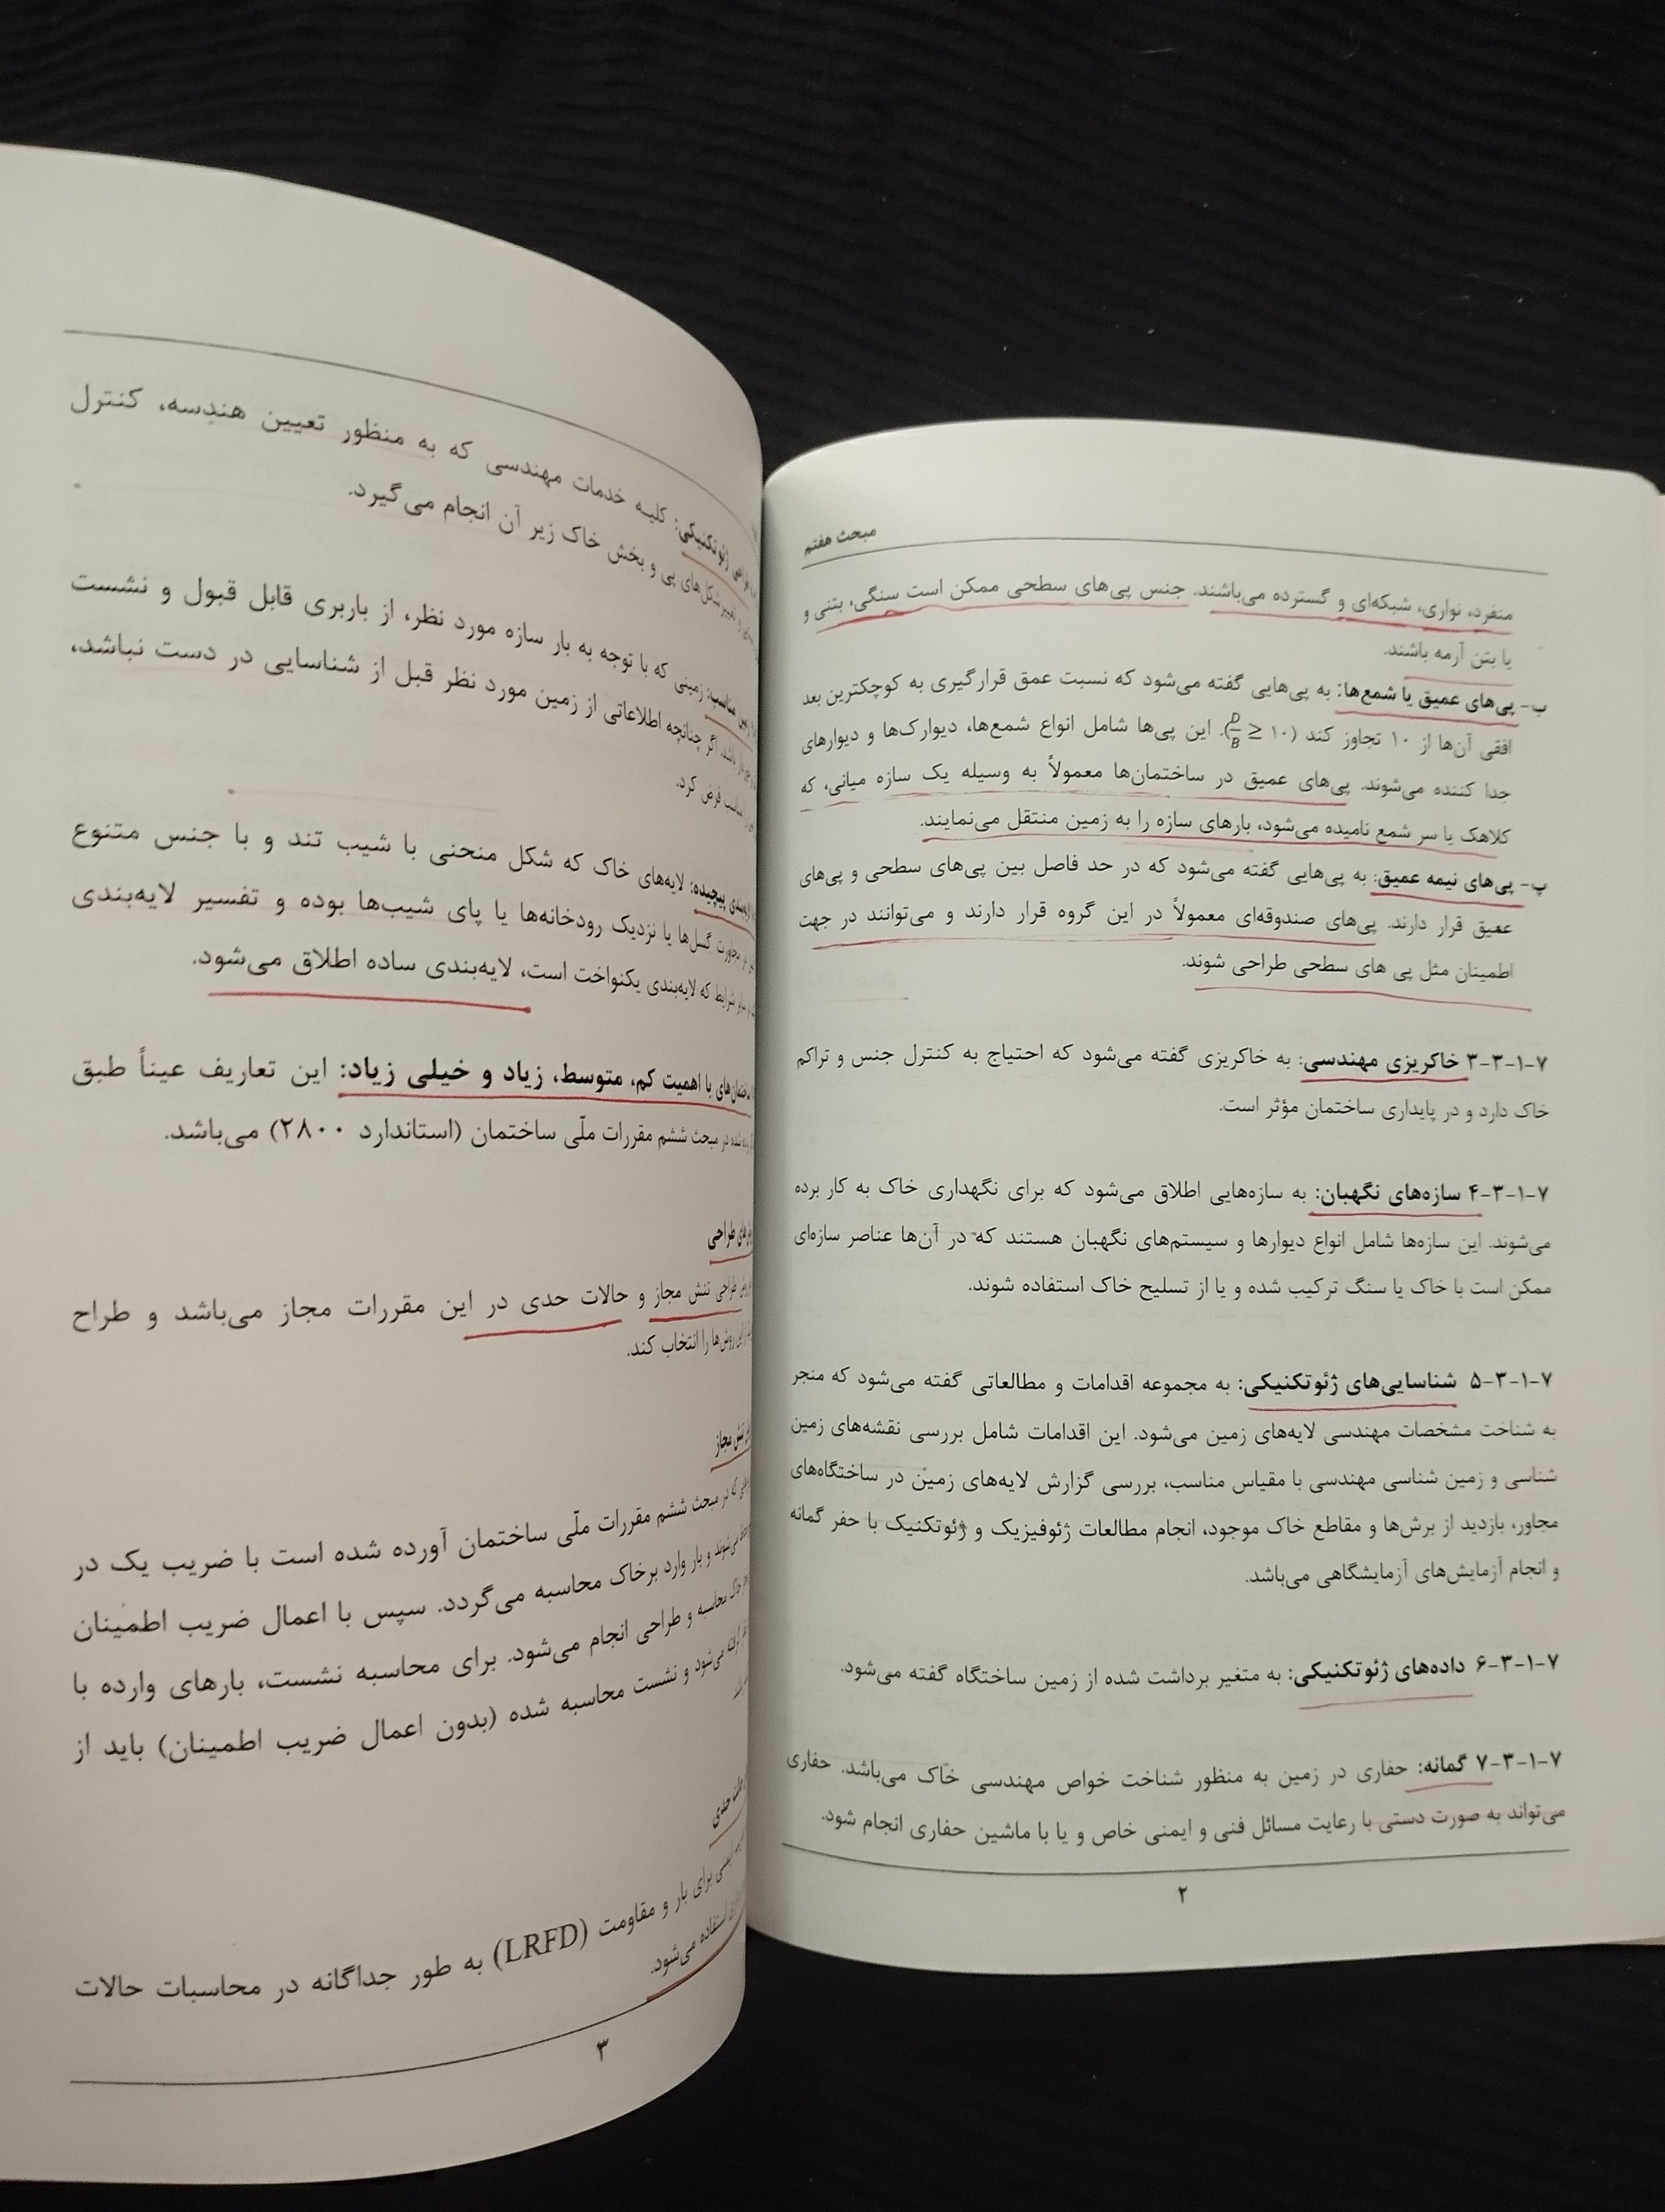 مبحث هفتم
منفرد، نواری، شبکه‌ای و گسترده می‌باشند. جنس پی‌های سطحی ممکن است سنگی، بتنی و
یا بتن آرمه باشند.
ب- پی‌های عمیق یا شمع‌ها: به پی‌هایی گفته می‌شود که نسبت عمق قرارگیری به کوچکترین بعد
افقی آن‌ها از ۱۰ تجاوز کند (۱۰ ≤ D/B). این پی‌ها شامل انواع شمع‌ها، دیوارک‌ها و دیوارهای
جدا کننده می‌شوند. پی‌های عمیق در ساختمان‌ها معمولاً به وسیله یک سازه میانی، که
کلاهک یا سر شمع نامیده می‌شود، بارهای سازه را به زمین منتقل می‌نمایند.
پ- پی‌های نیمه عمیق: به پی‌هایی گفته می‌شود که در حد فاصل بین پی‌های سطحی و پی‌های
عمیق قرار دارند. پی‌های صندوقه‌ای معمولاً در این گروه قرار دارند و می‌توانند در جهت
اطمینان مثل پی های سطحی طراحی شوند.
۷-۱-۳-۳ خاکریزی مهندسی: به خاکریزی گفته می‌شود که احتیاج به کنترل جنس و تراکم
خاک دارد و در پایداری ساختمان مؤثر است.
۷-۱-۳-۴ سازه‌های نگهبان: به سازه‌هایی اطلاق می‌شود که برای نگهداری خاک به کار برده
می‌شوند. این سازه‌ها شامل انواع دیوارها و سیستم‌های نگهبان هستند که در آن‌ها عناصر سازه‌ای
ممکن است با خاک یا سنگ ترکیب شده و یا از تسلیح خاک استفاده شوند.
۷-۱-۳-۵ شناسایی‌های ژئوتکنیکی: به مجموعه اقدامات و مطالعاتی گفته می‌شود که منجر
به شناخت مشخصات مهندسی لایه‌های زمین می‌شود. این اقدامات شامل بررسی نقشه‌های زمین
شناسی و زمین شناسی مهندسی با مقیاس مناسب، بررسی گزارش لایه‌های زمین در ساختگاه‌های
مجاور، بازدید از برش‌ها و مقاطع خاک موجود، انجام مطالعات ژئوفیزیک و ژئوتکنیک با حفر گمانه
و انجام آزمایش‌های آزمایشگاهی می‌باشد.
۷-۱-۳-۶ داده‌های ژئوتکنیکی: به متغیر برداشت شده از زمین ساختگاه گفته می‌شود.
۷-۱-۳-۷ گمانه: حفاری در زمین به منظور شناخت خواص مهندسی خاک می‌باشد. حفاری
می‌تواند به صورت دستی با رعایت مسائل فنی و ایمنی خاص و یا با ماشین حفاری انجام شود.
۲
ژئوتکنیکی: کلیه خدمات مهندسی که به منظور تعیین هندسه، کنترل
تغییر شکل‌های پی و بخش خاک زیر آن انجام می‌گیرد.
مناسب: زمینی که با توجه به بار سازه مورد نظر، از باربری قابل قبول و نشست
باشد. اگر چنانچه اطلاعاتی از زمین مورد نظر قبل از شناسایی در دست نباشد،
مناسب فرض کرد.
پیچیده: لایه‌های خاک که شکل منحنی با شیب تند و با جنس متنوع
مجاورت گسل‌ها یا نزدیک رودخانه‌ها یا پای شیب‌ها بوده و تفسیر لایه‌بندی
شرایط که لایه‌بندی یکنواخت است، لایه‌بندی ساده اطلاق می‌شود.
ساختمان‌های با اهمیت کم، متوسط، زیاد و خیلی زیاد: این تعاریف عیناً طبق
شده در مبحث ششم مقررات ملّی ساختمان (استاندارد ۲۸۰۰) می‌باشد.
طراحی
طراحی تنش مجاز و حالات حدی در این مقررات مجاز می‌باشد و طراح
این روش‌ها را انتخاب کند.
تنش مجاز
که در مبحث ششم مقررات ملّی ساختمان آورده شده است با ضریب یک در
می‌شوند و بار وارد برخاک محاسبه می‌گردد. سپس با اعمال ضریب اطمینان
خاک محاسبه و طراحی انجام می‌شود. برای محاسبه نشست، بارهای وارده با
گرفته می‌شود و نشست محاسبه شده (بدون اعمال ضریب اطمینان) باید از
حدی
ایمنی برای بار و مقاومت (LRFD) به طور جداگانه در محاسبات حالات
استفاده می‌شود.
۳